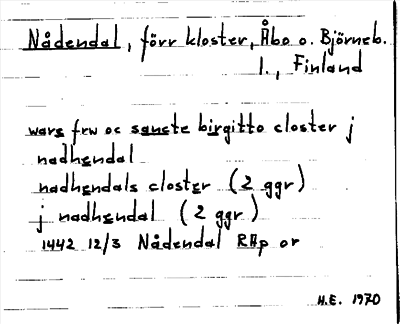 Nådendal, förr kloster, Åbo o. Björneb.
l., Finland
wars frw oc sancte birgitto closter j
nadhendal
nadhendals closter (2 ggr)
j nadhendal (2 ggr)
1442 12/3 Nådendal RAp or
H.E. 1970